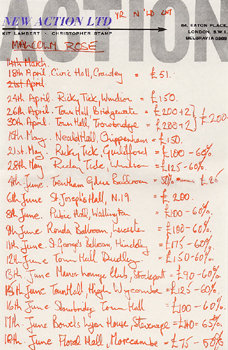 YR N'LD LOT
NEW ACTION LTD
KIT LAMBERT · CHRISTOPHER STAMP
84, EATON PLACE,
LONDON, S.W.1.
BELGRAVIA
MALCOLM ROSE
14th March.
18th April Civic Hall, Crawley = £51.
21st April
24th April. Ricky Tick, Windsor = £150.
26th April. Town Hall Bridgwater = £200+2
30th April. Town Hall Trowbridge = £200+2 £200
May. Neeld Hall, Chippenham = £150.
21st May. Ricky Tick, Guildford = £100-60%
28th May. Ricky Tick, Windsor = £125-60%
4th June. Trentham Gdns Ballroom 50%
6th June St. Joseph's Hall, N.19 = £200.
8th June. Public Hall, Wallington = £100-60%.
9th June Ronda Ballroom, Leicester = £100-60%.
11th June. St George's Ballroom, Hinckley = £175-60%
12th June Town Hall Dudley = £150-60%.
13th June Manor Lounge Club, Stockport = £90-60%
15th June Town Hall High Wycombe = £125-60%.
16th June Stourbridge Town Hall = £100-60%.
17th June Bowes Lyon House, Stevenage = £100-65%.
18th June Floral Hall, Morecambe = £75-50%